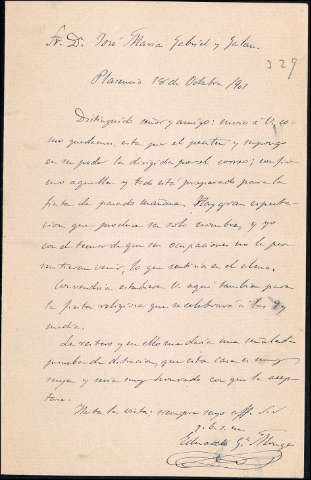 Sr. D. José Maria Gabriel y Galan.
329
Plasencia 18 de Octubre 1901
Distinguido señor y amigo: envio á V, co-
mo quedamos, esta por el peaton y supongo
en su poder la dirigida por el correo; confir-
mo aquella y todo está preparado para la
fiesta de pasado mañana. Hay gran espectacion
que produce su solo nombre, y yo
con el temor de que sus ocupaciones no le per-
mitieran venir, lo que sentiria en el alma.
Convendria estuviera V. aqui tambien para
la fiesta religiosa que se celebrará á las 9 y
media.
Le reitero y en ello me daria una señalada
prueba de distincion, que esta casa es muy
suya y seria muy honrado con que la acep-
tara.
Hasta la vista; siempre suyo aff. S. S.
q. b. s. m.
Eduardo